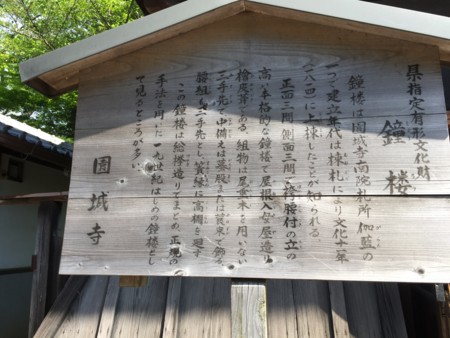 県指定有形文化財
鐘楼
鐘楼は園城寺南院札所 伽藍の
一つで建立年代は棟札により文化十一年
(一八一四)に上棟したことが知られる
正面三間、側面三間、袴腰付の立の
高い本格的な鐘楼で屋根入母屋造り
檜皮葺である。組物は尾垂木を用いない
三手先で、中備えは蟇股または簑束で飾る
腰組も三手先とし、簀縁に高欄を廻す
この鐘楼は総欅造りでまとめ、正規の
手法を用いた一九世紀はじめの鐘楼とし
て見るところが多い。
園城寺